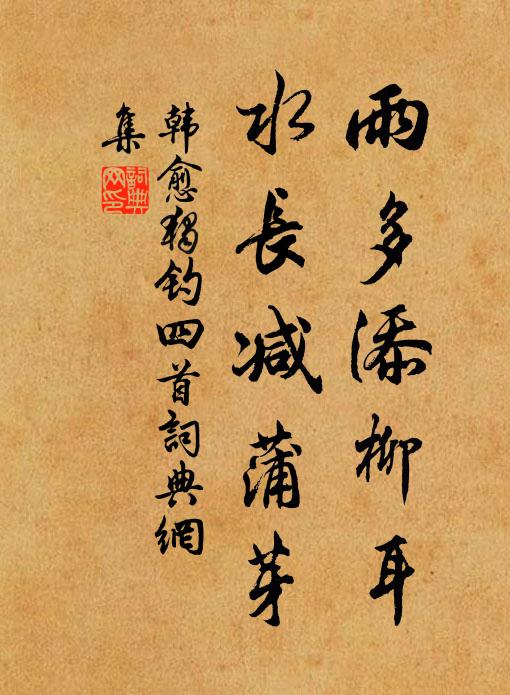 雨多添柳耳
水長减蒲芽
韩愈独钓四首詞典網
集
詞典網印